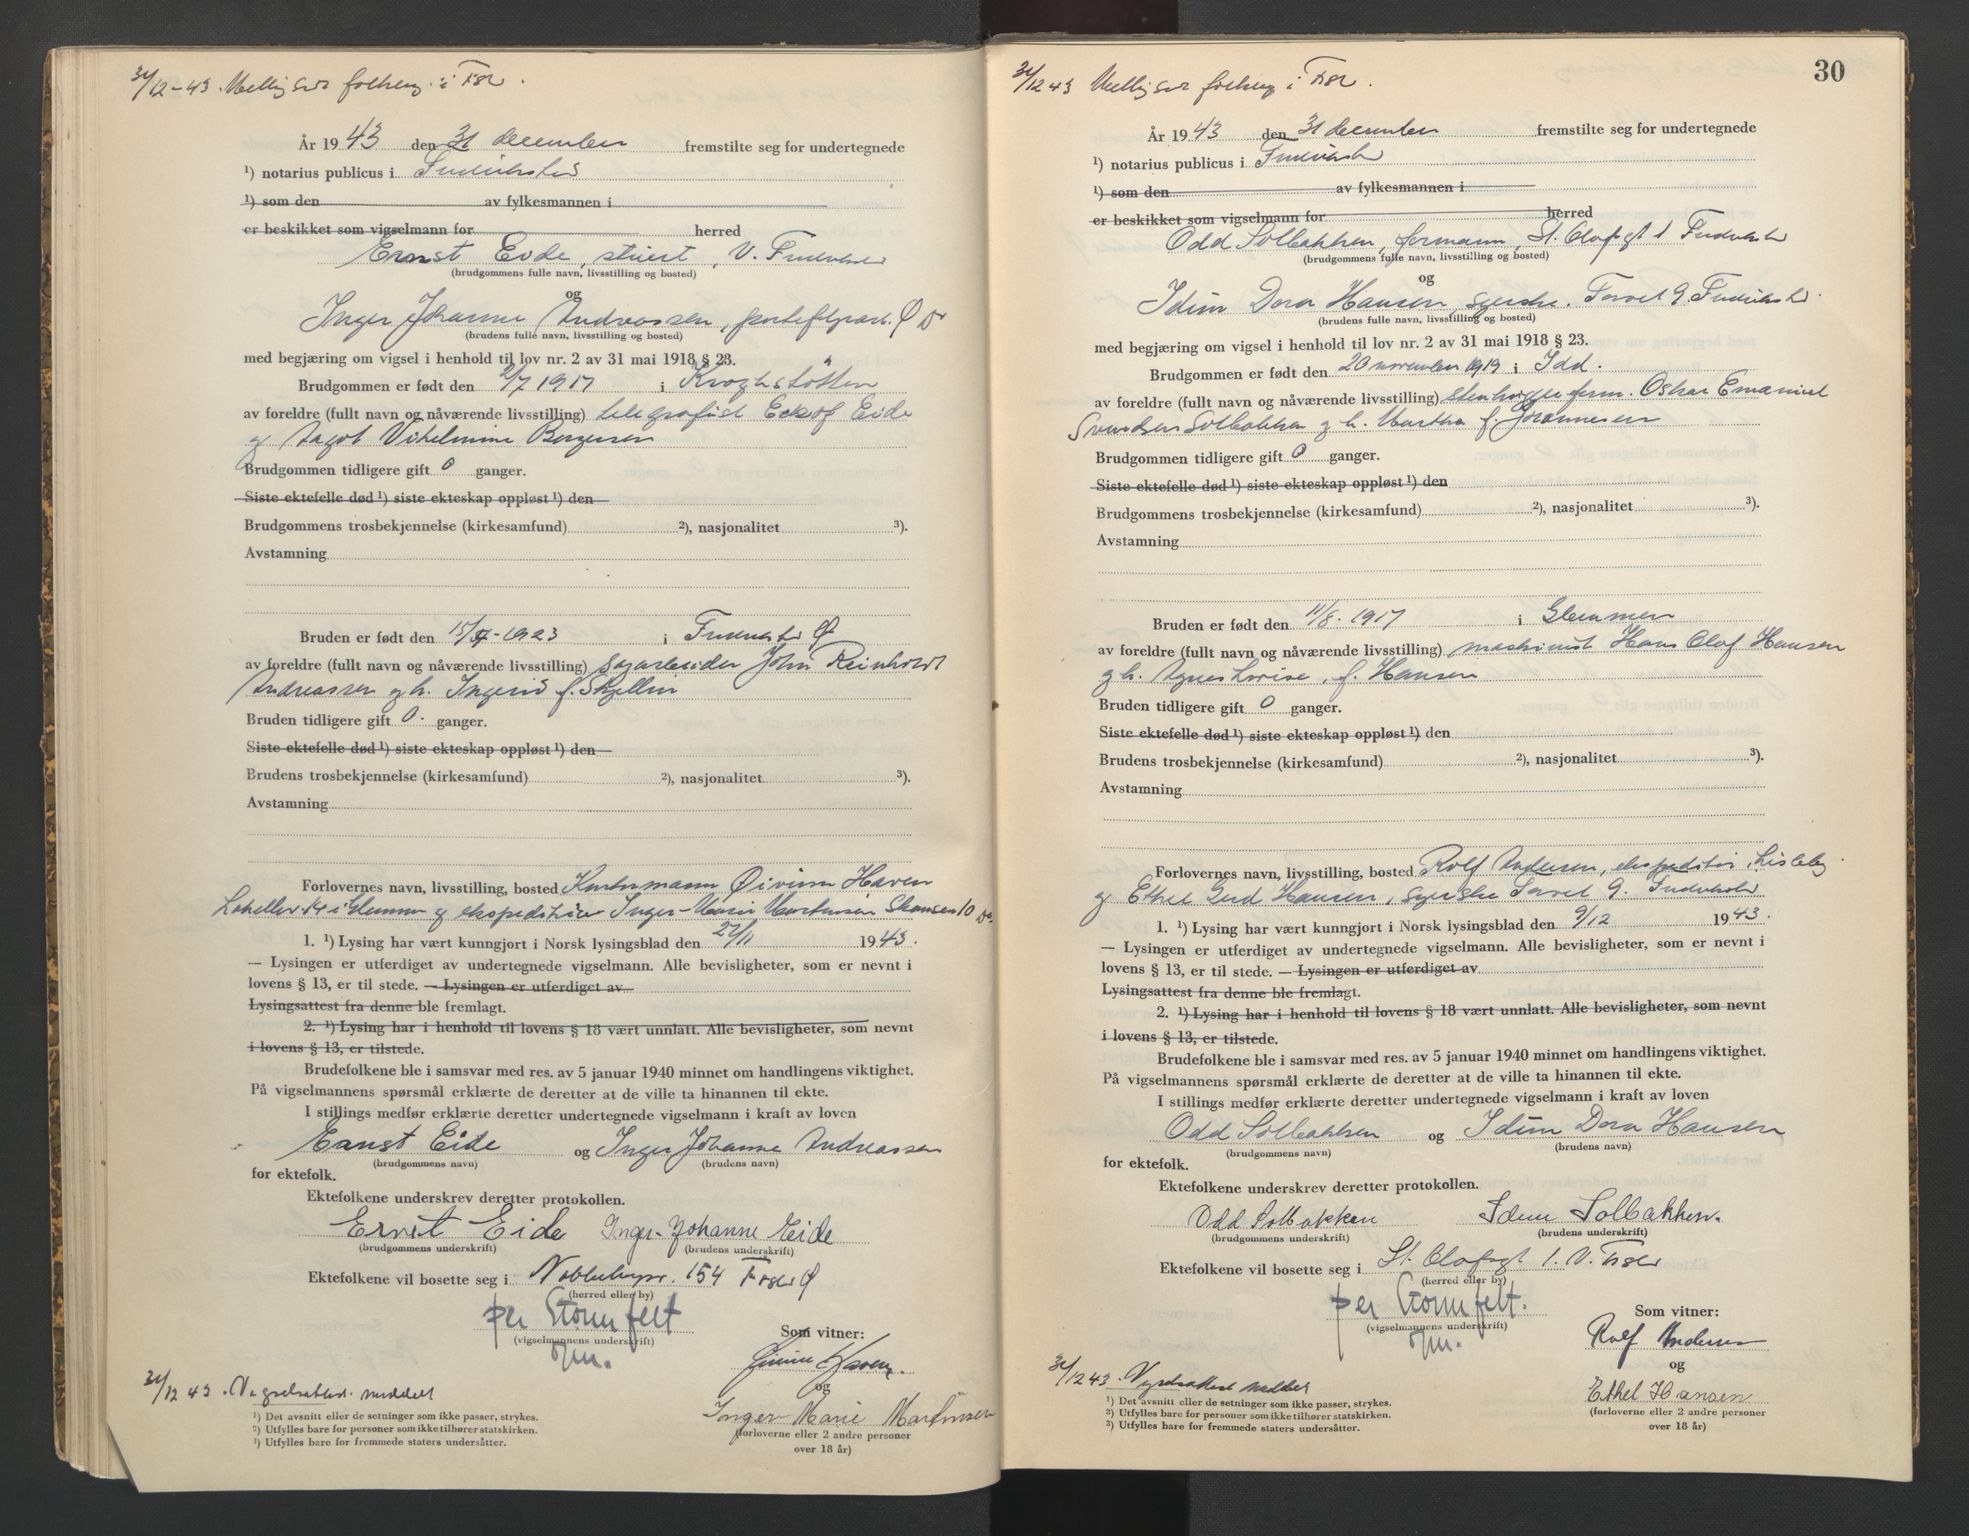 31/12-43. i Fst.
År 1943 den 31 december fremstilte seg for undertegnede
¹) notarius publicus i Fredrikstad
¹) som den av fylkesmannen i
er beskikket som vigselmann for herred
Ernst Eide, stuert, V. Fredrikstad
(brudgommens fulle navn, livsstilling og bosted)
og
Inger Johanne Andreassen,
(brudens fulle navn, livsstilling og bosted)
med begjæring om vigsel i henhold til lov nr. 2 av 31 mai 1918 § 23.
Brudgommen er født den 2/7 1917 i
av foreldre (fullt navn og nåværende livsstilling) telegrafist Eide
og Dagot Vilhelmine
Brudgommen tidligere gift 0 ganger.
Siste ektefelle død ¹) siste ekteskap oppløst ¹) den
Brudgommens trosbekjennelse (kirkesamfund) ²), nasjonalitet ³).
Avstamning
Bruden er født den 1923 i Fredrikstad Ø
av foreldre (fullt navn og nåværende livsstilling) sagarbeider John Reinholdt
Andreassen og h. Ingerid f. Skjellin
Bruden tidligere gift 0. ganger.
Siste ektefelle død ¹) siste ekteskap oppløst ¹) den
Brudens trosbekjennelse (kirkesamfund) ²), nasjonalitet ³).
Avstamning
Forlovernes navn, livsstilling, bosted Øivinn Haven
14 i Glemmen og ekspeditrise Inger-Marie Martinsen Skansen 10
1. ¹) Lysing har vært kunngjort i Norsk lysingsblad den 27/11 1943.
— Lysingen er utferdiget av undertegnede vigselmann. Alle bevisligheter, som er nevnt i
lovens § 13, er til stede. — Lysingen er utferdiget av
Lysingsattest fra denne ble fremlagt.
2. ¹) Lysing har i henhold til lovens § 18 vært unnlatt. Alle bevisligheter, som nevnt
i lovens § 13, er tilstede.
Brudefolkene ble i samsvar med res. av 5 januar 1940 minnet om handlingens viktighet.
På vigselmannens spørsmål erklærte de deretter at de ville ta hinannen til ekte.
I stillings medfør erklærte deretter undertegnede vigselmann i kraft av loven
Ernst Eide og Inger Johanne Andreassen
(brudgommens navn) (brudens navn)
for ektefolk.
Ektefolkene underskrev deretter protokollen.
Ernst Eide Inger-Johanne Eide
(brudgommens underskrift) (brudens underskrift)
Ektefolkene vil bosette seg i 154 Ø
(herred eller by)
per Stormfelt
(vigselmannens underskrift)
Som vitner:
Øivinn Haven
og
Inger Marie Martinsen
(forloverne eller 2 andre personer
over 18 år)
31/12 43. Vigselsattest meddelt
¹) Det avsnitt eller de setninger som ikke passer, strykes.
²) Utfylles bare for personer som ikke tilhører statskirken.
³) Utfylles bare for fremmede staters undersåtter.
30
31/12 43 i Fst.
År 1943 den 31 december fremstilte seg for undertegnede
¹) notarius publicus i Fredrikstad
¹) som den av fylkesmannen i
er beskikket som vigselmann for herred
Odd Solbakken, formann, St. Olafsgt 1 Fredrikstad
(brudgommens fulle navn, livsstilling og bosted)
og
Idun Dora Hansen, syerske. Torvet 9 Fredrikstad.
(brudens fulle navn, livsstilling og bosted)
med begjæring om vigsel i henhold til lov nr. 2 av 31 mai 1918 § 23.
Brudgommen er født den 20 november 1919 i Idd.
av foreldre (fullt navn og nåværende livsstilling) stenhugger Oskar Emanuel
Svendsen Solbakken og h. Martha f. Johannesen
Brudgommen tidligere gift 0 ganger.
Siste ektefelle død ¹) siste ekteskap oppløst ¹) den
Brudgommens trosbekjennelse (kirkesamfund) ²), nasjonalitet ³).
Avstamning
Bruden er født den 11/8. 1917 i Glemmen
av foreldre (fullt navn og nåværende livsstilling) maskinist Hans Olaf Hansen
og h. Agnes Lovise, f. Hansen
Bruden tidligere gift 0 ganger.
Siste ektefelle død ¹) siste ekteskap oppløst ¹) den
Brudens trosbekjennelse (kirkesamfund) ²), nasjonalitet ³).
Avstamning
Forlovernes navn, livsstilling, bosted Rolf Andersen, ekspeditør, Lisleby
og Ethel Gerd Hansen, syerske Torvet 9. Fredrikstad
1. ¹) Lysing har vært kunngjort i Norsk lysingsblad den 9/12 1943.
— Lysingen er utferdiget av undertegnede vigselmann. Alle bevisligheter, som er nevnt i
lovens § 13, er til stede. — Lysingen er utferdiget av
Lysingsattest fra denne ble fremlagt.
2. ¹) Lysing har i henhold til lovens § 18 vært unnlatt. Alle bevisligheter, som nevnt
i lovens § 13, er tilstede.
Brudefolkene ble i samsvar med res. av 5 januar 1940 minnet om handlingens viktighet.
På vigselmannens spørsmål erklærte de deretter at de ville ta hinannen til ekte.
I stillings medfør erklærte deretter undertegnede vigselmann i kraft av loven
Odd Solbakken og Idun Dora Hansen
(brudgommens navn) (brudens navn)
for ektefolk.
Ektefolkene underskrev deretter protokollen.
Odd Solbakken Idun Solbakken.
(brudgommens underskrift) (brudens underskrift)
Ektefolkene vil bosette seg i St. Olafsgt 1. V.
(herred eller by)
per Stormfelt.
(vigselmannens underskrift)
Som vitner:
Rolf Andersen
og
Ethel Hansen
(forloverne eller 2 andre personer
over 18 år)
31/12 43. Vigselsattest meddelt
¹) Det avsnitt eller de setninger som ikke passer, strykes.
²) Utfylles bare for personer som ikke tilhører statskirken.
³) Utfylles bare for fremmede staters undersåtter.